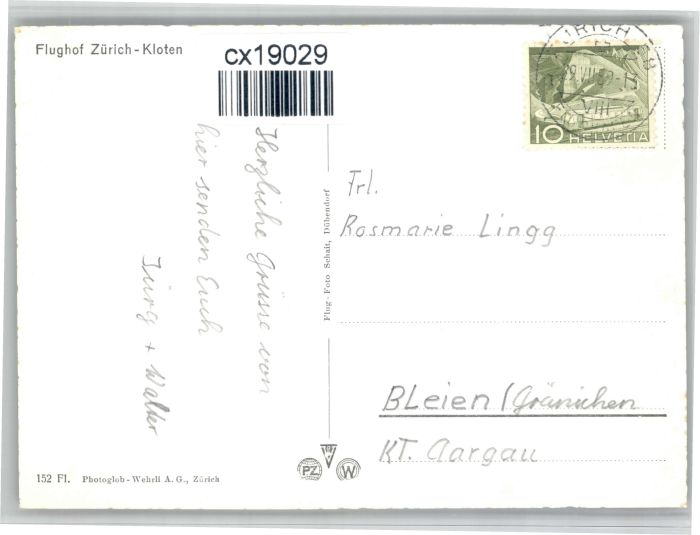 Flughof Zürich-Kloten
cx19029
ZÜRICH
VIII
10 HELVETIA
Herzliche Grüsse von
hier senden Euch
Jürg + Walter
Flug-Foto Schait, Dübendorf
Frl.
Rosmarie Lingg
BLeien/Gränichen
KT. Aargau
PZ W
152 Fl. Photoglob-Wehrli A.G., Zürich